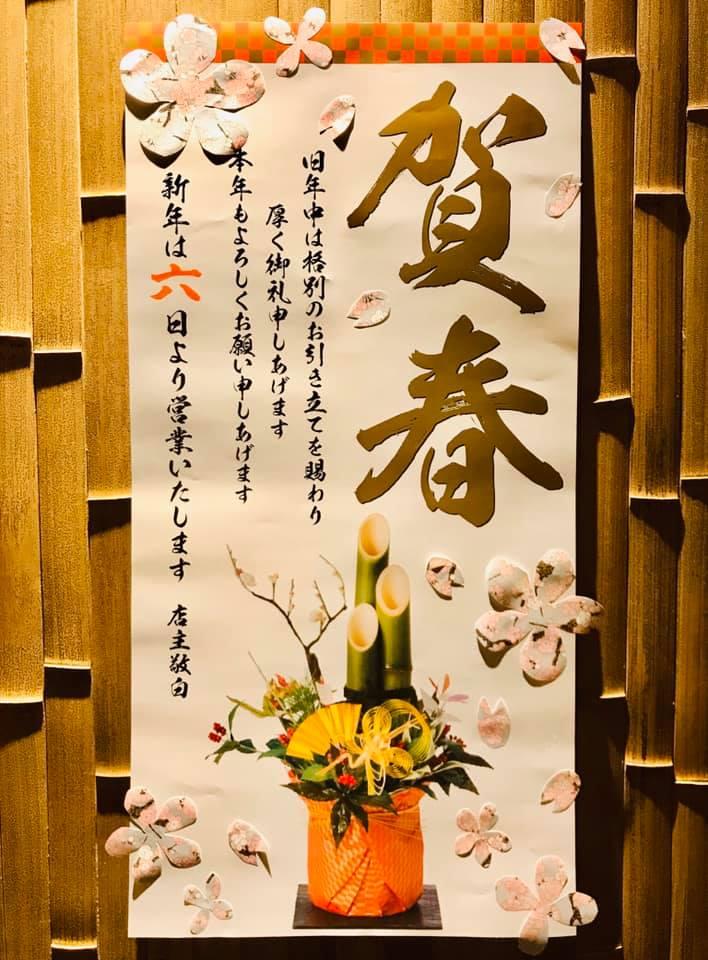 賀春
旧年中は格別のお引き立てを賜わり
厚く御礼申しあげます
本年もよろしくお願い申しあげます
新年は六日より営業いたします
店主敬白